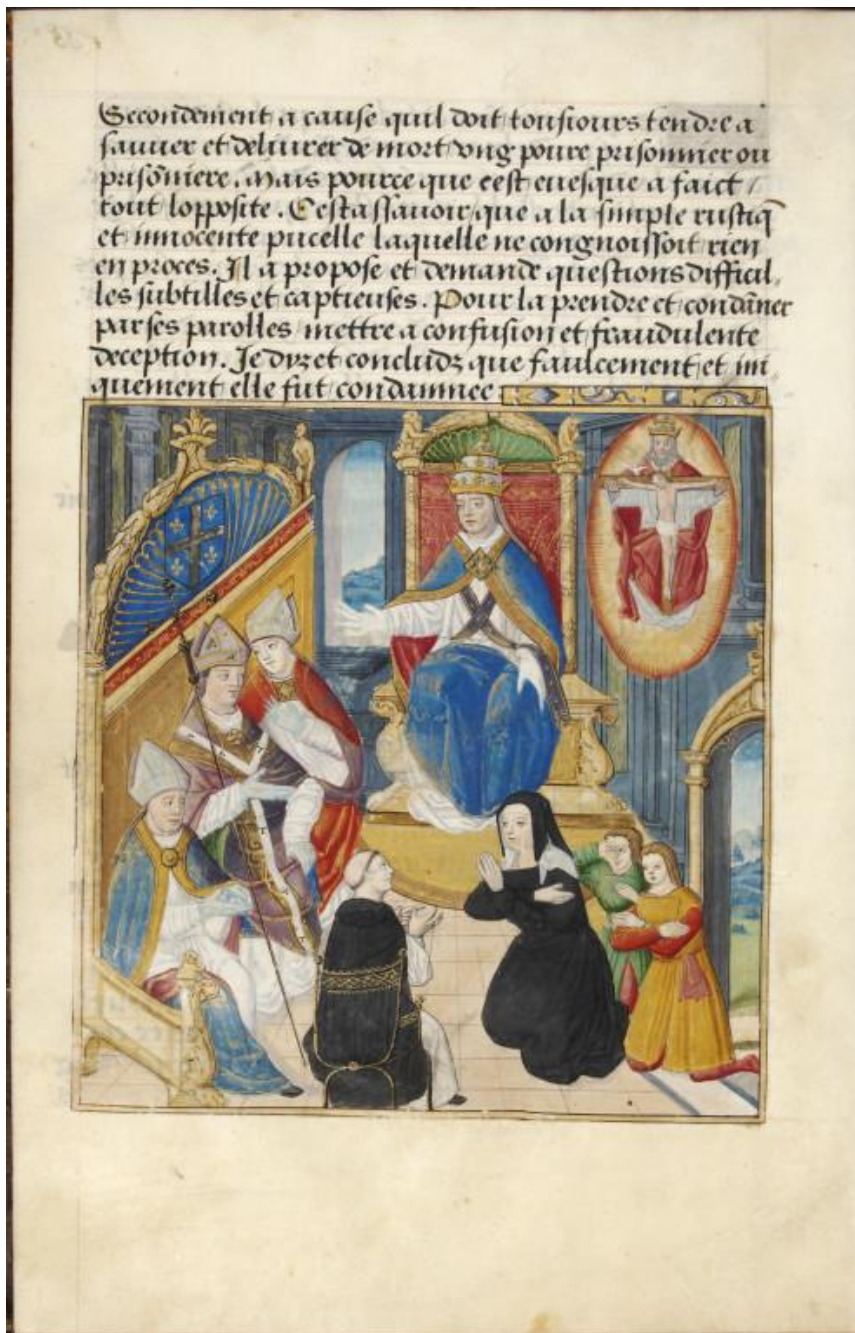 Secondement a cause quil doit tousiours tendre a
sauuer et deliurer de mort vng poure prisonnier ou
prisõniere. Mais pource que cest euesque a faict /
tout lopposite. Cestassauoir que a la simple rustiq̃
et innocente pucelle laquelle ne congnoissoit rien
en proces. Il a propose et demande questions difficil,
les subtilles et captieuses. Pour la prendre et condãner
par ses parolles mettre a confusion et fraudulente
deception. Je dyz et concludz que faulcement et ini,
quement elle fut condamnee